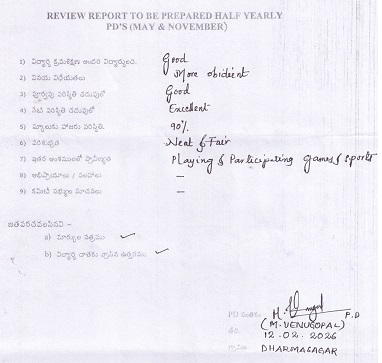 REVIEW REPORT TO BE PREPARED HALF YEARLY
PD'S (MAY & NOVEMBER)
1) విద్యార్థి క్రమశిక్షణ అందరి విద్యార్థులది. Good
2) వినయ విధేయతలు More obidient
3) పూర్వపు పరిస్థితి చదువులో Good
4) నేటి పరిస్థితి చదువులో Excellent
5) స్కూలుకు హాజరు పరిస్థితి. 90%
6) పరిశుభ్రత Neat & Fair
7) ఇతర అంశములతో ప్రావీణ్యత Playing & Participating games & sports
8) అభిప్రాయాలు / సలహాలు –
9) కమిటీ సభ్యుల సూచనలు –
జతపరచవలసినవి -
a) మార్కుల పత్రము ✓
b) విద్యార్థి దాతకు వ్రాసిన ఉత్తరము ✓
PD సంతకం P.D
(M. VENUGOPAL)
తేది. 12.02.2026
గ్రామం DHARMASAGAR